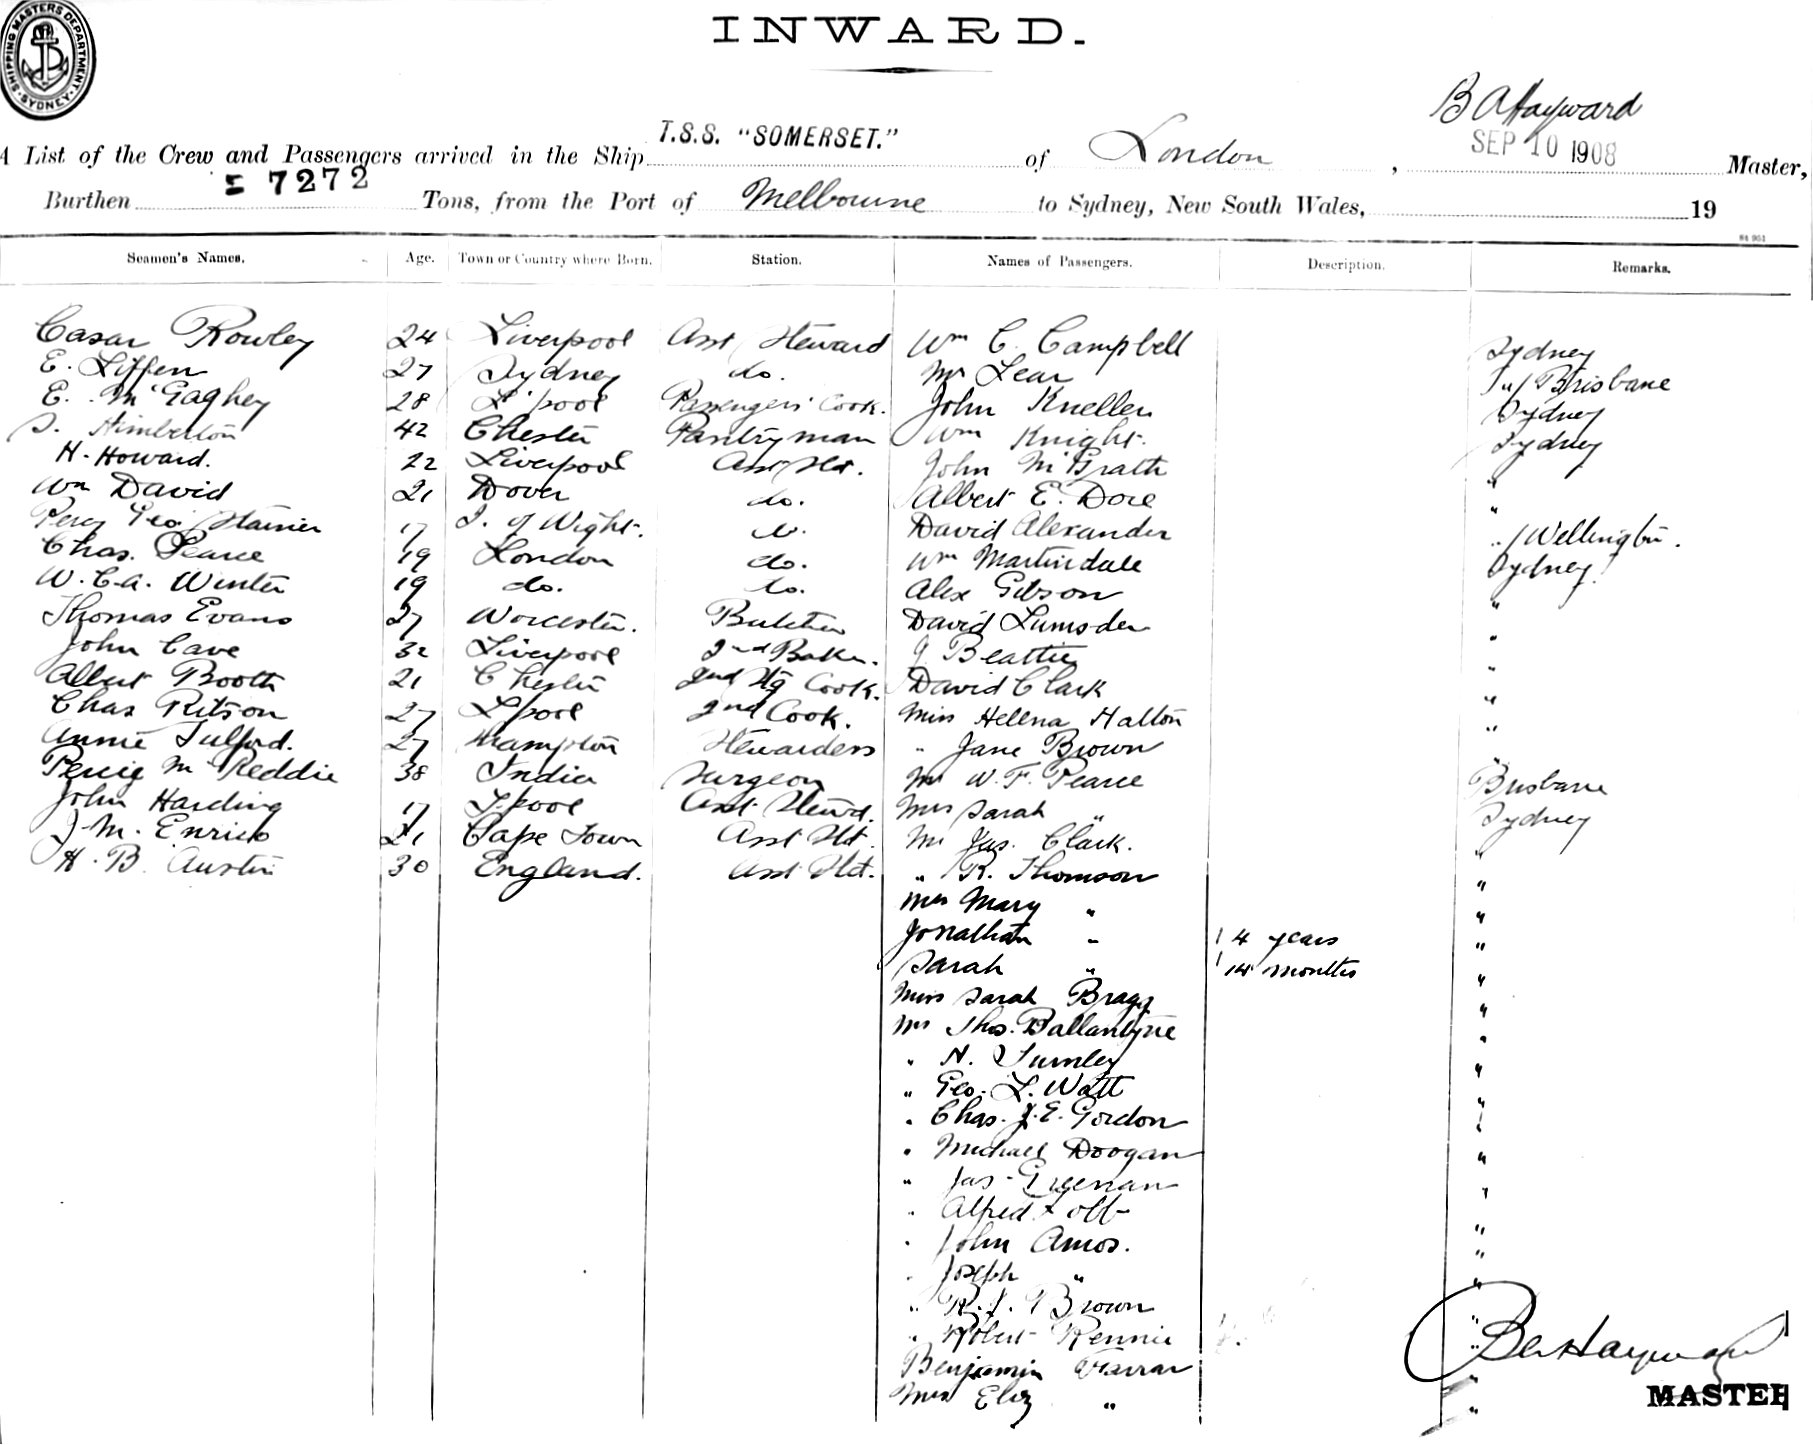 SHIPPING MASTERS DEPARTMENT · SYDNEY ·
INWARD.
B A Hayward
A List of the Crew and Passengers arrived in the Ship T.S.S. "SOMERSET." of London, SEP 10 1908 Master,
Burthen 7272 Tons, from the Port of Melbourne to Sydney, New South Wales, 19
Seamen's Names. Age. Town or Country where Born. Station. Names of Passengers. Description. Remarks.
Casar Rowley 24 Liverpool Asst Steward Wm C. Campbell Sydney
E. Liffen 27 Sydney do. Mr Lear Brisbane
E. McGaghey 28 L'pool Passengers' Cook. John Kneller Sydney
S. Himberton 42 Chester Pantryman Wm Knight. Sydney
H. Howard. 22 Liverpool Asst Std. John McGrath "
Wm David 21 Dover do. Albert E. Dore "
Percy Geo. Stainer 17 I. of Wight. do. David Alexander Wellington.
Chas. Pearce 19 London do. Wm Martindale Sydney.
W. C. A. Winter 19 do. do. Alex Gibson "
Thomas Evans 27 Worcester. Butcher David Lumsden "
John Cave 32 Liverpool 2nd Baker. J. Beattie "
Albert Booth 21 Chester 2nd Cook. David Clark "
Chas Ritson 27 L'pool 2nd Cook. Miss Helena Halton "
Annie Tulford. 27 Stewardess " Jane Brown "
Percie McReddie 38 India Surgeon Mr W. F. Pearce Brisbane
John Harding 17 L'pool Asst Stewd. Mrs Sarah " Sydney
J. M. Enrico 21 Cape Town Asst Std. Mr Jas. Clark. "
H. B. Austin 30 England. Asst Std. " R. Thomson "
Mrs Mary " "
Jonathan " 4 years "
Sarah " 14 months "
Miss Sarah Bragg "
Mr Thos. Ballantyne "
" N. Tumley "
" Geo. L. Watt "
" Chas. J. E. Gordon "
" Michael Doogan "
" Jas. "
" Alfred "
" John Amos. "
" Joseph " "
" R. J. Brown "
" Robert Rennie "
Benjamin Farrar "
Mrs Eliz " "
B A Hayward
MASTER